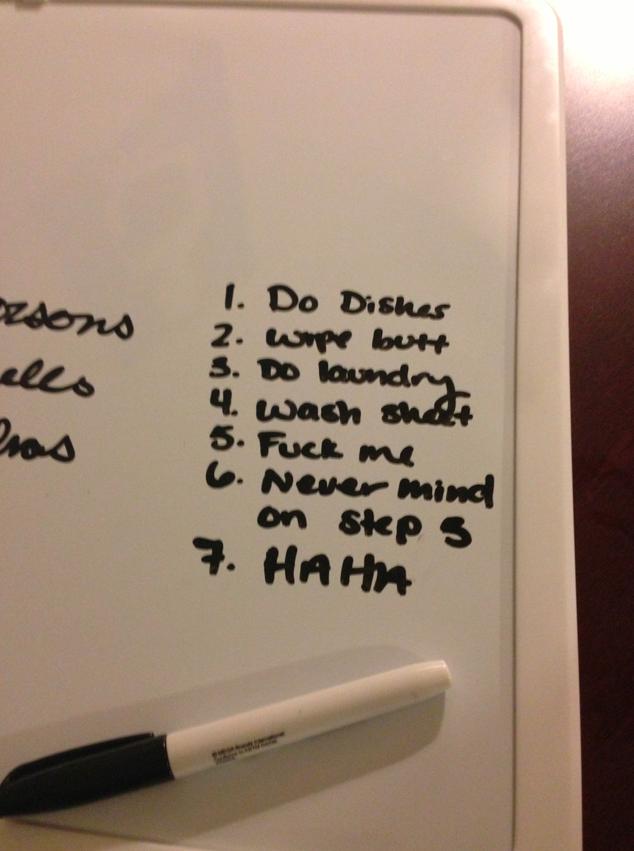 1. Do Dishes
2. wipe butt
3. Do laundry
4. wash sheet
5. Fuck me
6. Never mind
on step 5
7. HAHA